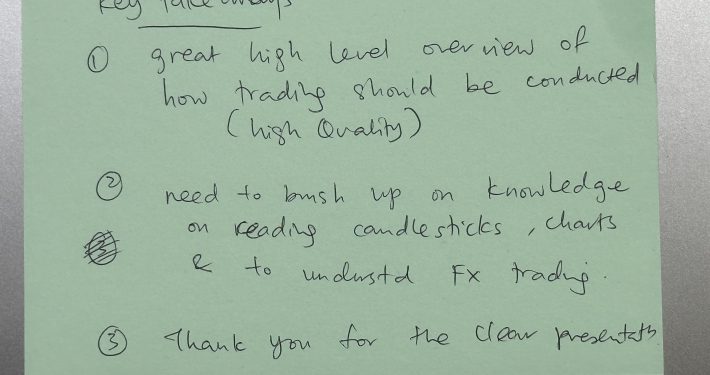 Key Takeaways
① great high level overview of
how trading should be conducted
(high Quality)
② need to brush up on knowledge
on reading candlesticks, charts
& to understd FX trading.
③ Thank you for the clear presentatn